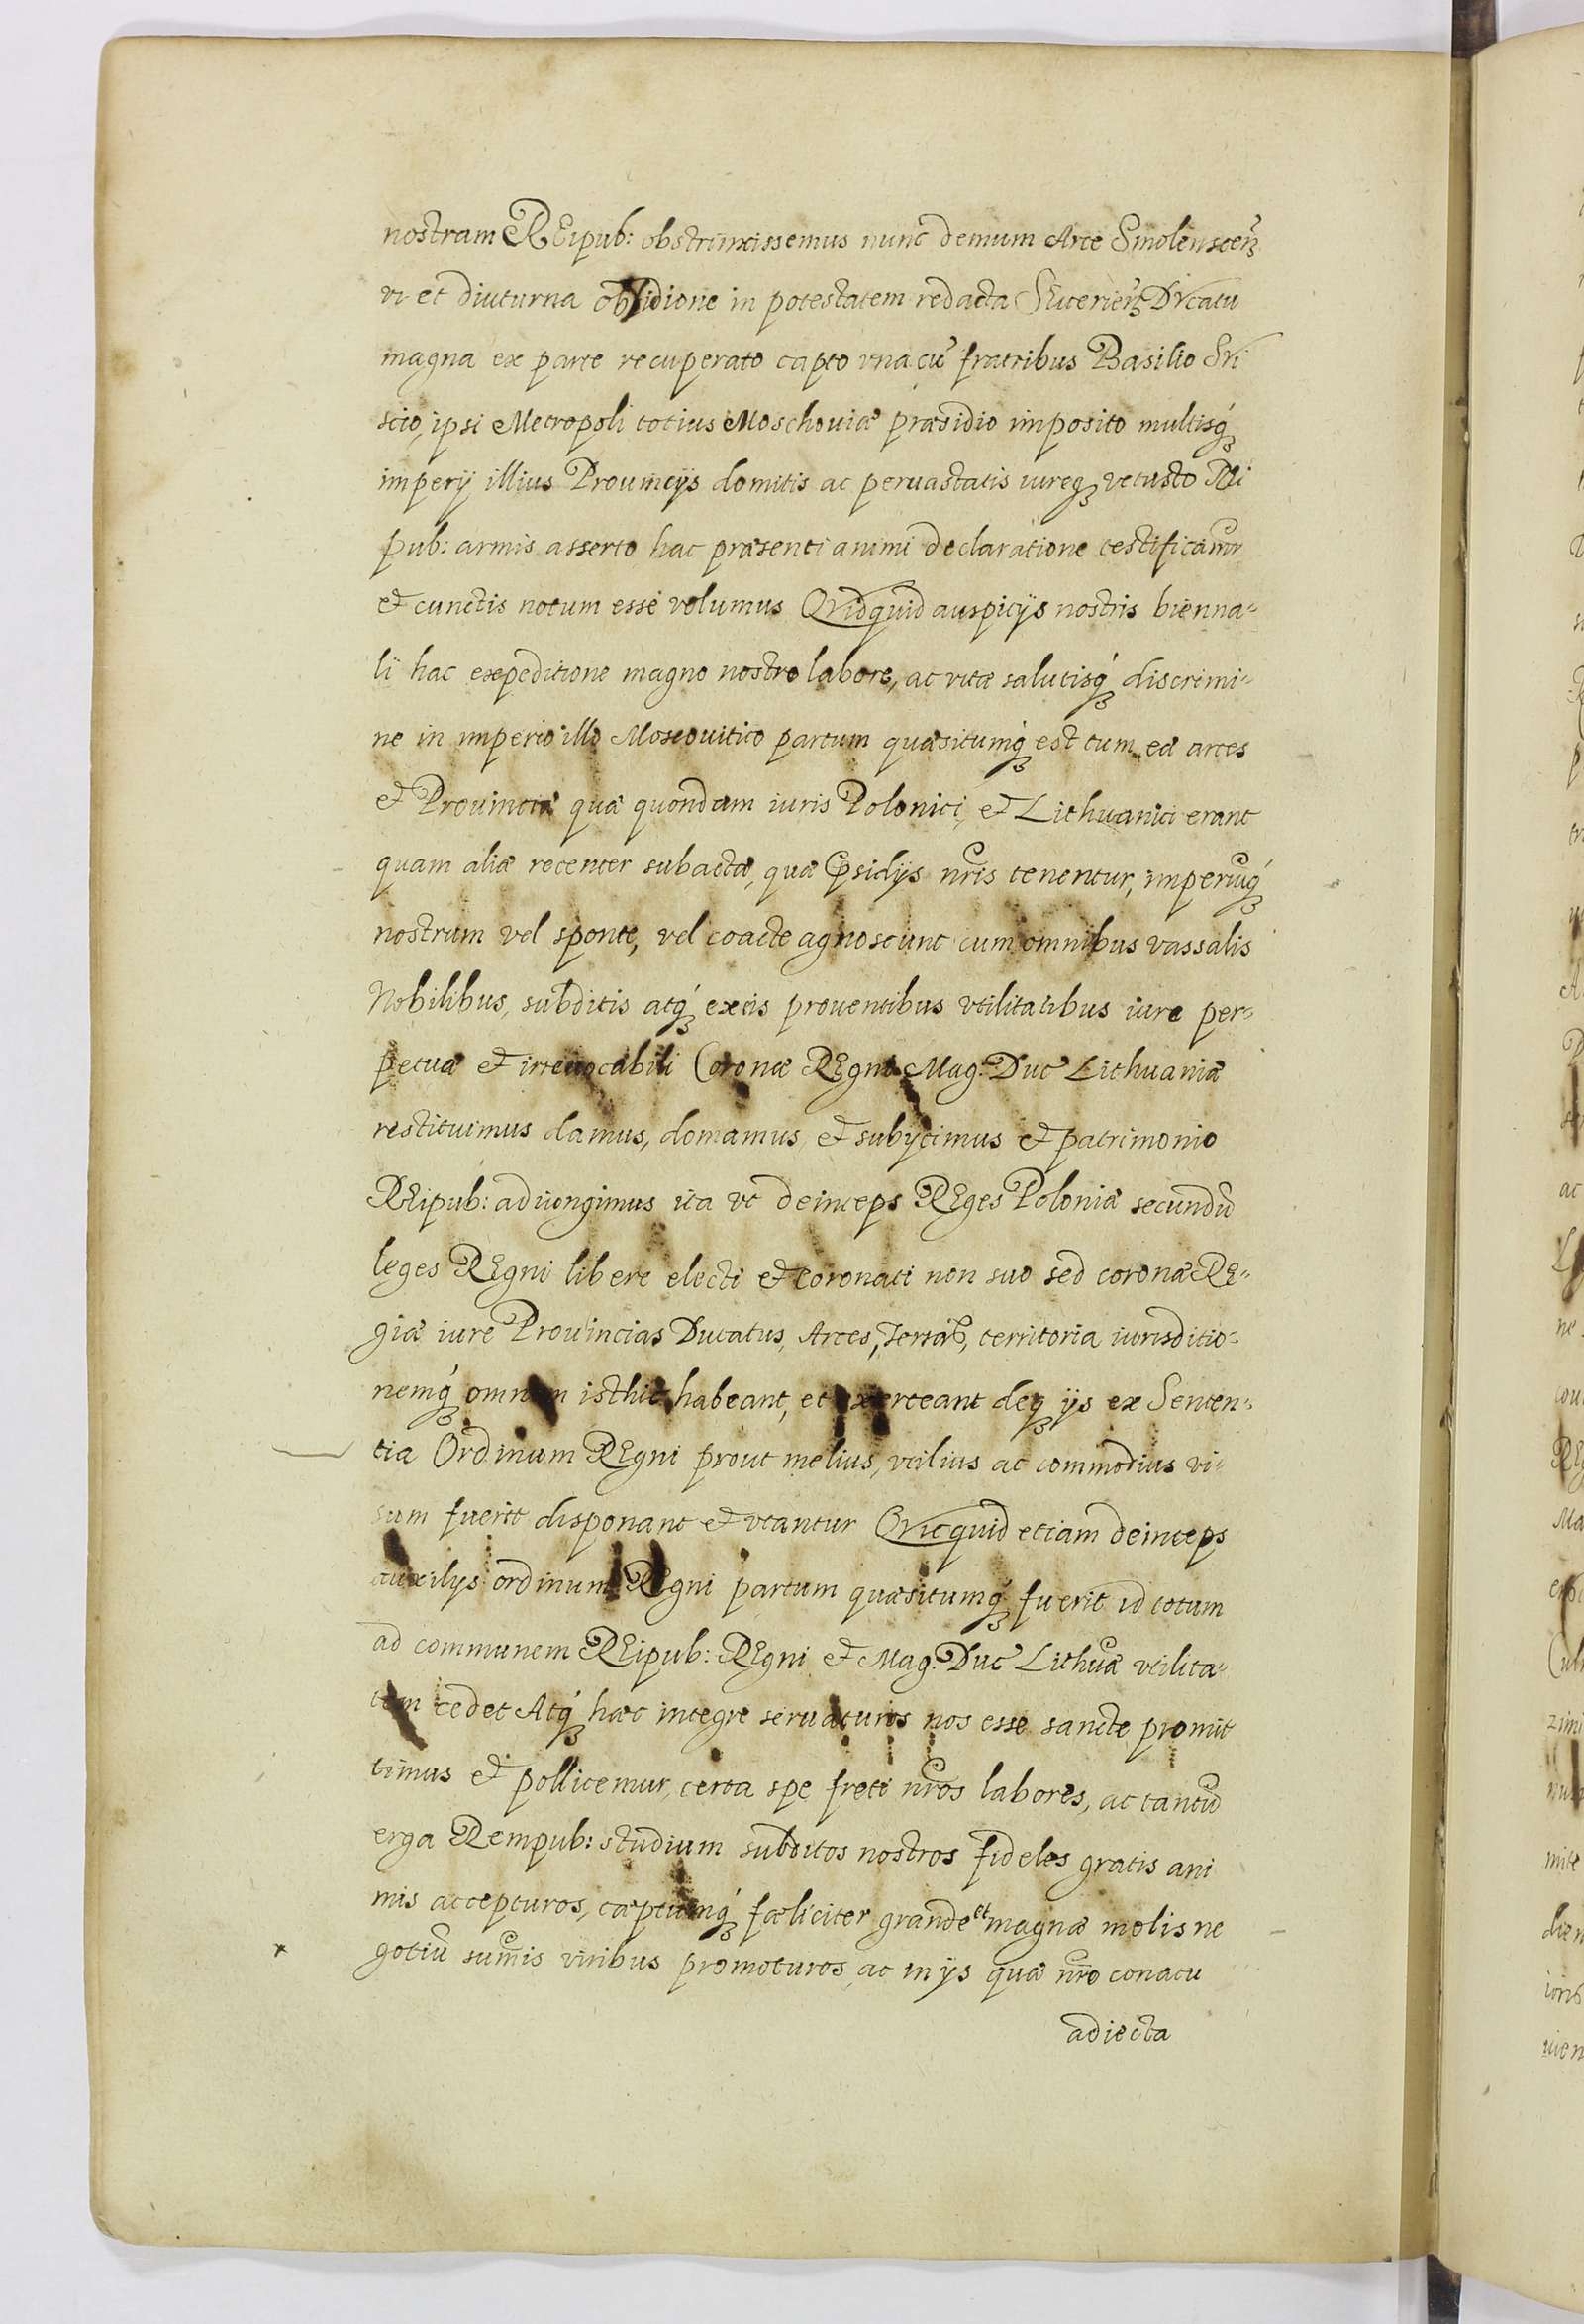 nostram REipub: obstrinxissemus nunc demum Arce Smolenscen̄
vi et diuturna obsidione in potestatem redacta SEuerien̄ Dvcatu
magna ex parte recuperato capto vna cū fratribus Basilio Svi
scio, ipsi Metropoli totius Moschouiæ præsidio imposito multisq́ꝫ
imperÿ illius Prouincÿs domitis ac peruastatis iureqꝫ vetusto Rei
pub: armis asserto hac præsenti animi declaratione testificamur
et cunctis notum esse volumus Qvidquid auspicÿs nostris bienna=
li hac expeditione magno nostro labore, ac vitæ salutisq́ꝫ discrimi=
ne in imperio illo Moscouitico partum quæsitumq́ꝫ est tum eæ arces
et Prouinciæ quæ quondam iuris Polonici, et Lithuanici erant
quam aliæ recenter subactæ, quæ psidÿs nris tenentur, imperiuq́ꝫ
nostrum vel sponte, vel coacte agnoscunt cum omnibus vassalis
Nobilibus, subditis atq́ꝫ exeis prouentibus vtilitatibus iure per=
petuæ et irreuocabili Coronæ REgni Mag: Duc Lithuaniæ
restituimus damus, domamus et subÿcimus et patrimonio
REipub: adiungimus ita vt deinceps REges Poloniæ secundū
leges REgni libere electi et coronati non suo sed coronæ RE=
giæ iure Prouincias Ducatus, Arces, territoria iurisditio=
nemq́ꝫ omnem isthic habeant, et exerceant deqꝫ ÿs ex Senten=
tia Ordinum REgni prout melius, vtilius ac commodius vi=
sum fuerit disponant et vtantur Qvicquid etiam deinceps
auxilÿs ordinum REgni partum quæsitumq́ꝫ fuerit id totum
ad communem REipub: REgni et Mag: Duc Lithuæ vtilita=
tem cedet Atq́ꝫ hæc integre seruaturos nos esse sancte promit
timus et pollicemur, certa spe freti nros labores, ac tantū
erga Rempub: studium subditos nostros fideles gratis ani
mis accepturos, cæptumq́ꝫ fœliciter grande et magnæ molis ne
gotiū sumis viribus promoturos, ac in ÿs quæ nro conatu
adiecta